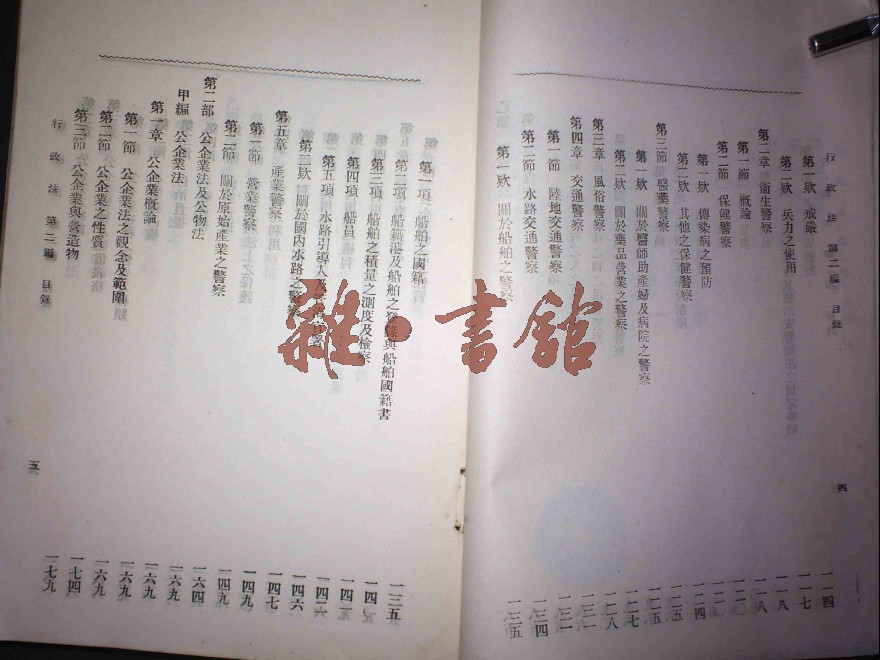 行政法 第二編 目錄
第一欵 戒嚴 一一四
第二欵 兵力之使用 一一七
第二章 衛生警察 一一八
第一節 概論 一一八
第二節 保健警察
第一欵 傳染病之預防
第二欵 其他之保健警察 一二四
第三節 醫藥警察 一二五
第一欵 關於醫師助產婦及病院之警察 一二五
第二欵 關於藥品營業之警察 一二七
第三章 風俗警察 一二八
第四章 交通警察 一三一
第一節 陸地交通警察 一三一
第二節 水路交通警察 一三四
第一欵 關於船舶之警察 一三五
四
第一項 船舶之國籍 一三五
第二項 船籍港及船舶之登錄與船舶國籍書
第三項 船舶之積量之測度及檢察
第四項 船員
第五項 水路引導人及
第二欵 關於國內水路之警察 一四六
第五章 產業警察 一四七
第一節 營業警察 一四九
第二節 關於原始產業之警察 一四九
第二部 公企業法及公物法 一六四
甲編 公企業法 一六九
第一章 公企業概論 一六九
第一節 公企業法之觀念及範圍 一六九
第二節 公企業之性質 一六九
第三節 公企業與營造物 一七四
行政法 第二編 目錄
五
一七九
雜·書館